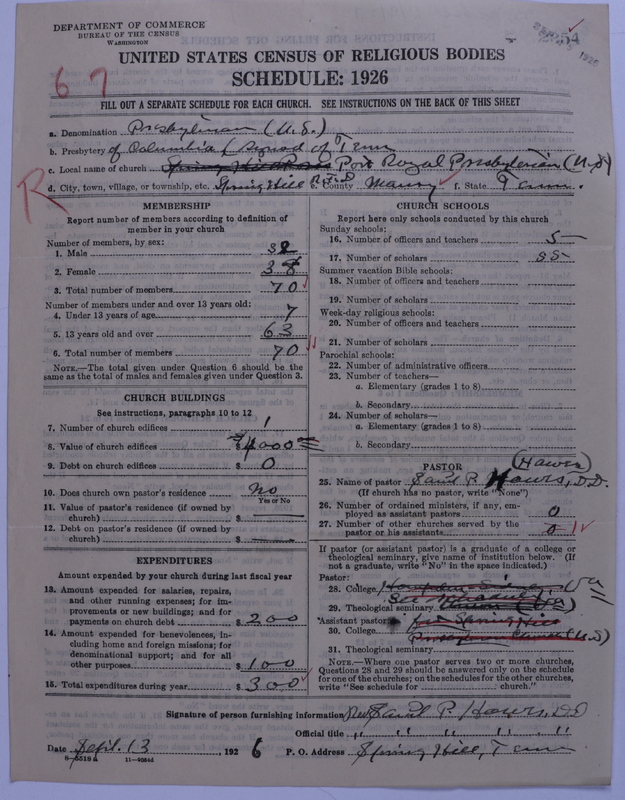 DEPARTMENT OF COMMERCE
BUREAU OF THE CENSUS
WASHINGTON
UNITED STATES CENSUS OF RELIGIOUS BODIES
67
SCHEDULE: 1926
FILL OUT A SEPARATE SCHEDULE FOR EACH CHURCH. SEE INSTRUCTIONS ON THE BACK OF THIS SHEET
a. Denomination Presbyterian (U.S.)
b. Presbytery of Columbia / Synod of Tenn
c. Local name of church Port Royal Presbyterian (U.S)
R
d. City, town, village, or township, etc. Spring Hill e. County Maury f. State Tenn.
MEMBERSHIP
Report number of members according to definition of
member in your church
Number of members, by sex:
1. Male 32
2. Female 38
3. Total number of members 70
Number of members under and over 13 years old:
4. Under 13 years of age 7
5. 13 years old and over 63
6. Total number of members 70
NOTE.—The total given under Question 6 should be
same as the total of males and females given under Question 3.
CHURCH BUILDINGS
See instructions, paragraphs 10 to 12
7. Number of church edifices 1
8. Value of church edifices $ 4000
9. Debt on church edifices $ 0
10. Does church own pastor's residence No
Yes or No
11. Value of pastor's residence (if owned by
church) $
12. Debt on pastor's residence (if owned by
church) $
EXPENDITURES
Amount expended by your church during last fiscal year
13. Amount expended for salaries, repairs,
and other running expenses; for im-
provements or new buildings; and for
payments on church debt $ 200
14. Amount expended for benevolences, in-
cluding home and foreign missions; for
denominational support; and for all
other purposes $ 100
15. Total expenditures during year $ 300
CHURCH SCHOOLS
Report here only schools conducted by this church
Sunday schools:
16. Number of officers and teachers 5
17. Number of scholars 35
Summer vacation Bible schools:
18. Number of officers and teachers
19. Number of scholars
Week-day religious schools:
20. Number of officers and teachers
21. Number of scholars
Parochial schools:
22. Number of administrative officers
23. Number of teachers—
a. Elementary (grades 1 to 8)
b. Secondary
24. Number of scholars—
a. Elementary (grades 1 to 8)
b. Secondary
PASTOR (Hawes)
25. Name of pastor Saml P. Hawes, D.D.
(If church has no pastor, write "None")
26. Number of ordained ministers, if any, em-
ployed as assistant pastors 0
27. Number of other churches served by the
pastor or his assistants 0
If pastor (or assistant pastor) is a graduate of a college or
theological seminary, give name of institution below. (If
not a graduate, write "No" in the space indicated.)
Pastor:
28. College
29. Theological seminary
Assistant pastor:
30. College
31. Theological seminary
NOTE.—Where one pastor serves two or more churches,
Questions 28 and 29 should be answered only on the schedule
for one of the churches; on the schedules for the other churches,
write "See schedule for church."
Signature of person furnishing information Rev Saml P. Hawes, D.D
Official title " " " "
Date Sept. 13, 1926 P. O. Address Spring Hill, Tenn
8—5518a 11—9584d